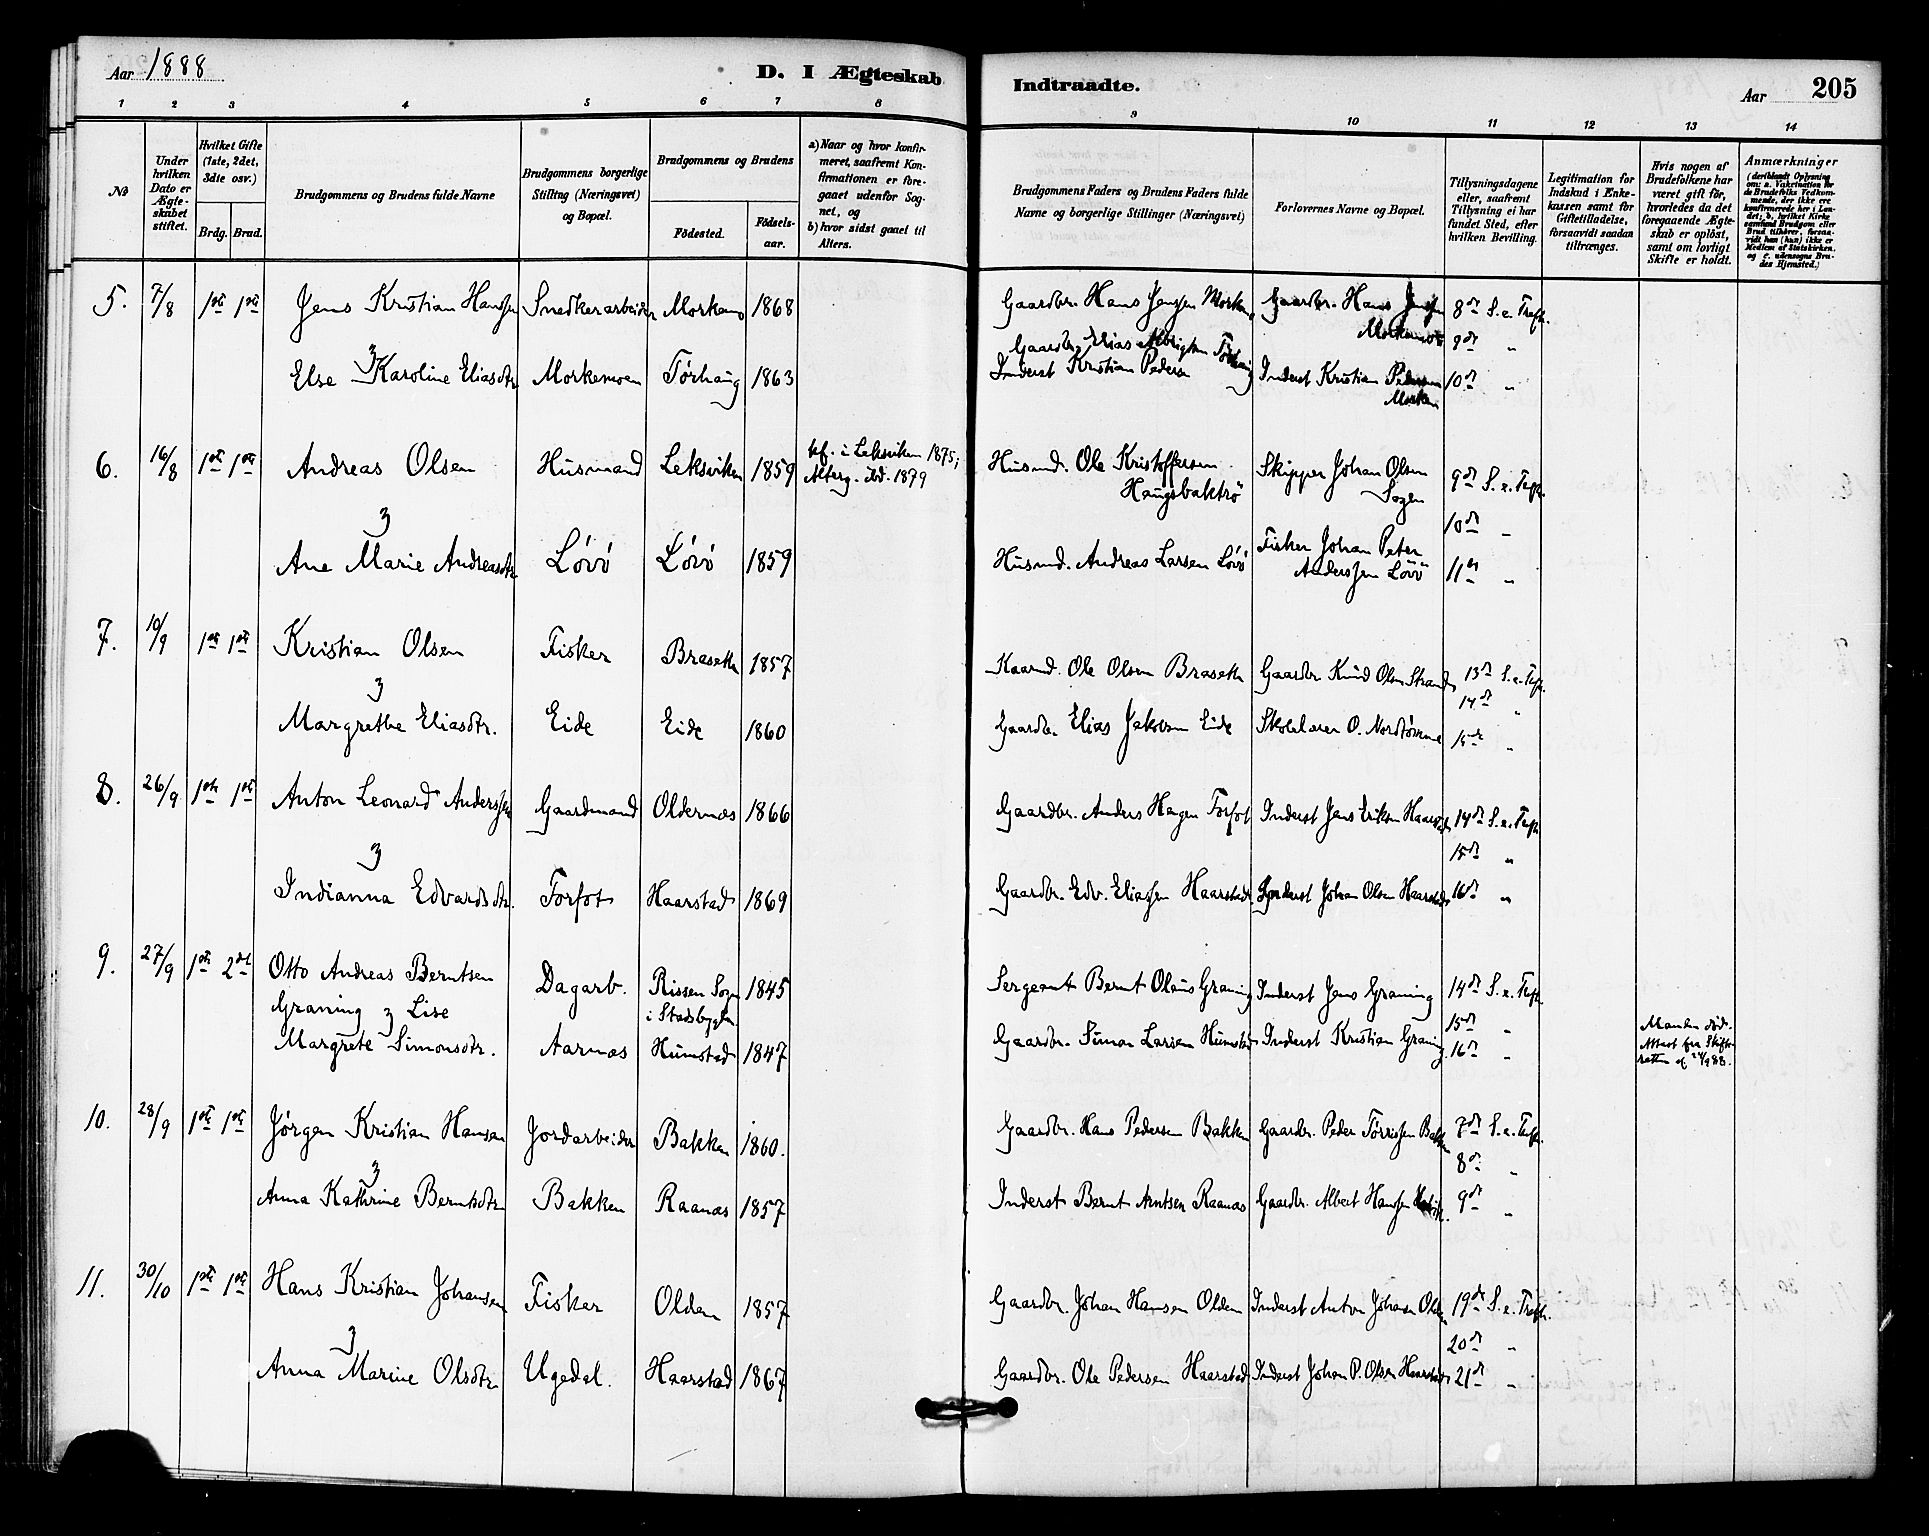 Aar 1888
D. I Ægteskab
Indtraadte.
Aar
205
1 2 3 4 5 6 7 8 9 10 11 12 13 14
No
Under hvilken Dato er Ægteskabet stiftet.
Hvilket Gifte (1ste, 2det, 3die osv.)
Brdg. Brud.
Brudgommens og Brudens fulde Navne
Brudgommens borgerlige Stilling (Næringsvei) og Bopæl.
Brudgommens og Brudens
Födested.
Födsels-aar.
a) Naar og hvor konfirmeret, saafremt Konfirmationen er foregaaet udenfor Sognet, og
b) hvor sidst gaaet til Alters.
Brudgommens Faders og Brudens Faders fulde Navne og borgerlige Stillinger (Næringsvei)
Forlovernes Navne og Bopæl.
Tillysningsdagene eller, saafremt Tillysning ei har fundet Sted, efter hvilken Bevilling.
Legitimation for Indskud i Enkekassen samt for Giftetilladelse, forsaavidt saadan tiltrænges.
Hvis nogen af Brudefolkene har været gift för, hvorledes da det foregaaende Ægteskab er oplöst, samt om lovligt Skifte er holdt.
Anmærkninger
5. 7/8 1ste 1ste Jens Kristian Hanssen Snedkerarbeider Morkemo 1868 Gaardbr. Hans Jenssen Gaardbr. Hans Jenssen 8de S. e. Trefh.
Morkemo 9de "
Gaardbr. Elias Törhaug
Else Karoline Eliasdtr. Morkemoen Törhaug 1863 Inderst Kristian Pedersen Inderst Kristian Pedersen 10de "
Morken
6. 16/8 1ste 1ste Andreas Olsen Husmand Leksviken 1859 kf. i Leksviken 1875; Husmd. Ole Kristoffersen Skipper Johan Olsen 9de S. e. Trefh.
Alterg. ibd. 1879 Haugsbaktrö Sogen
10de "
Ane Marie Andreasdtr. Lövö Lövö 1859 Husmd. Andreas Larsen Lövö Fisker Johan Peter
Anderssen Lövö 11te "
7. 10/9 1ste 1ste Kristian Olsen Fisker Braseth 1857 Kaarmd. Ole Olsen Braseth Gaardbr Knud Olsen Strand 13de S. e. Trefh.
14de "
Margrethe Eliasdtr. Eide Eide 1860 Gaardbr. Elias Jakobsen Eide Skolelærer O. Nordtömme 15de "
8. 26/9 1ste 1ste Anton Leonard Anderssen Gaardmand Oldernæs 1866 Gaardbr. Anders Hagen Forfot Inderst Jens Eriksen Haarstad 14de S. e. Trefh.
15de "
Indianna Edvardsdtr. Forfot Haarstad 1869 Gaardbr. Edv. Eliassen Haarstad Inderst Johan Olsen Haarstad 16de "
9. 27/9 1ste 2det Otto Andreas Berntsen Dagarb. Rissen Sogn 1845 Sergeant Bernt Olaus Graning Inderst Jens Graning 14de S. e. Trefh.
Graning & Lise i Stadsbygden 15de " Manden död.
Margrete Simonsdtr. Aarnæs Humstad 1847 Gaardbr. Simon Larsen Humstad Inderst Kristian Graning 16de " Attest fra Skifteretten
10. 28/9 1ste 1ste Jörgen Kristian Hansen Jordarbeider Bakken 1860. Gaardbr. Hans Pedersen Bakken Gaardbr. Peder Törrissen Bakken 7de S. e. Trefh.
8de "
Anna Kathrine Berntsdtr. Bakken Raanæs 1857 Inderst Bernt Arntsen Raanæs Gaardbr. Albert Hanssen 9de "
11. 30/10 1ste 1ste Hans Kristian Johansen Fisker Olden 1857 Gaardbr. Johan Hansen Olden Inderst Anton Johansen Olden 19de S. e. Trefh.
20de "
Anna Marine Olsdtr. Ugedal. Haarstad 1867 Gaardbr. Ole Pedersen Haarstad Inderst Johan P. Olsen Haarstad 21de "